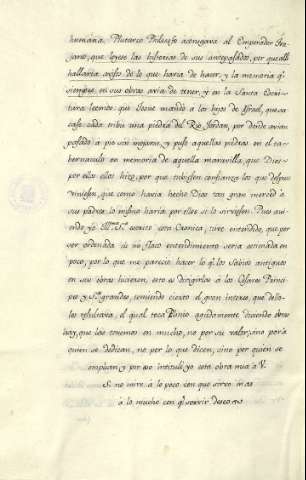 humana. Plutarco Philosofo
que leyese las historias de sus antepasados, por que alli
hallaria aviso de lo que havia de hacer, y la memoria q̃
siempre en sus obras avia de tener, y en la Santa Escri-
tura leemos que Josue mandó a los hijos de Israel, que sa-
case cada tribu una piedra del Rio Jordan, por donde avian
pasado a pie sin mojarse, y puso aquellas piedras en el ta-
bernaculo en memoria de aquella maravilla, que Dios
por ellos hizo, por que tubiesen confianza los que despues
viniesen, que como havia hecho Dios tan gran merced á
sus padres lo mismo haria por ellos si le sirviesen. Pues
yo escrito esta Cronica, tuve entendido, que por
ser ordenada de mi flaco entendimiento seria estimada en
poco, por lo que me parecio hacer lo q̃ los Sabios antiguos
en sus obras hicieron, esto es dirigirlas á los Cesares Princi-
pes y Sres grandes, teniendo cierto el gran interes, que de ello
les resultava, el qual toca Plinio agudamente diciendo obras
hay, que las tenemos en mucho, no por su valor, sino por á
quien se dedican, no por lo que dicen, sino por quien se
emplean y por eso intitulo yo esta obra mia a V.
S. no mire á lo poco con que sirvo mas
á lo mucho con q̃ servir deseo